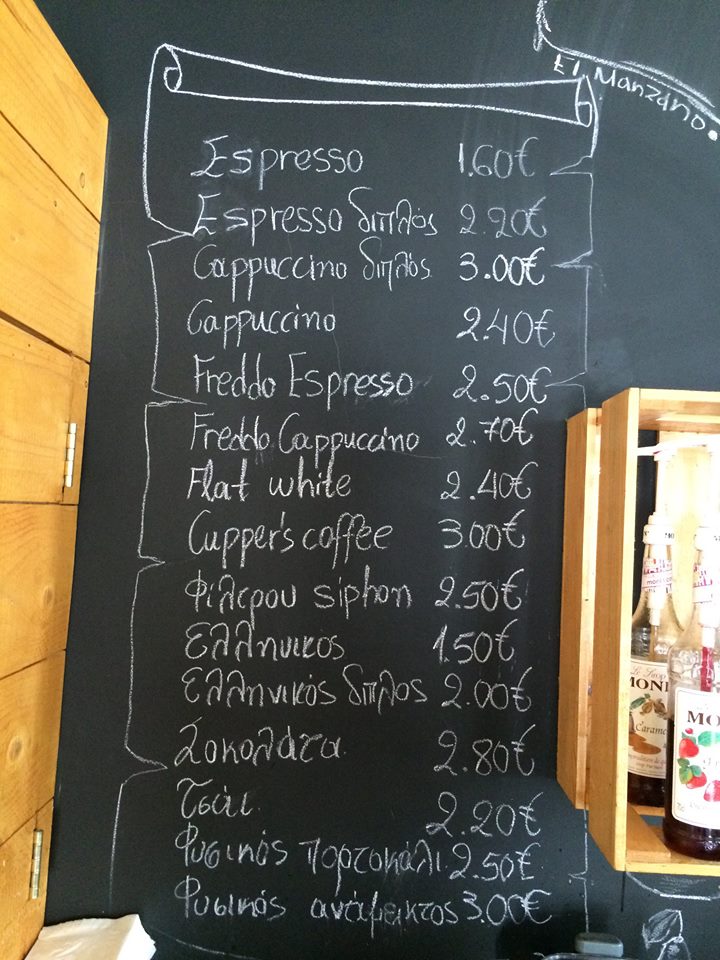 El Manzano
Espresso 1.60€
Espresso διπλός 2.20€
Cappuccino διπλός 3.00€
Cappuccino 2.40€
Freddo Espresso 2.50€
Freddo Cappuccino 2.70€
Flat white 2.40€
Cupper's coffee 3.00€
Φίλτρου siphon 2.50€
Ελληνικος 1.50€
Ελληνικός διπλος 2.00€
Σοκολάτα 2.80€
Τσάι 2.20€
Φυσικός πορτοκάλι 2.50€
Φυσικός ανάμεικτος 3.00€
Le Sirop de
MONI
Caramel
MO